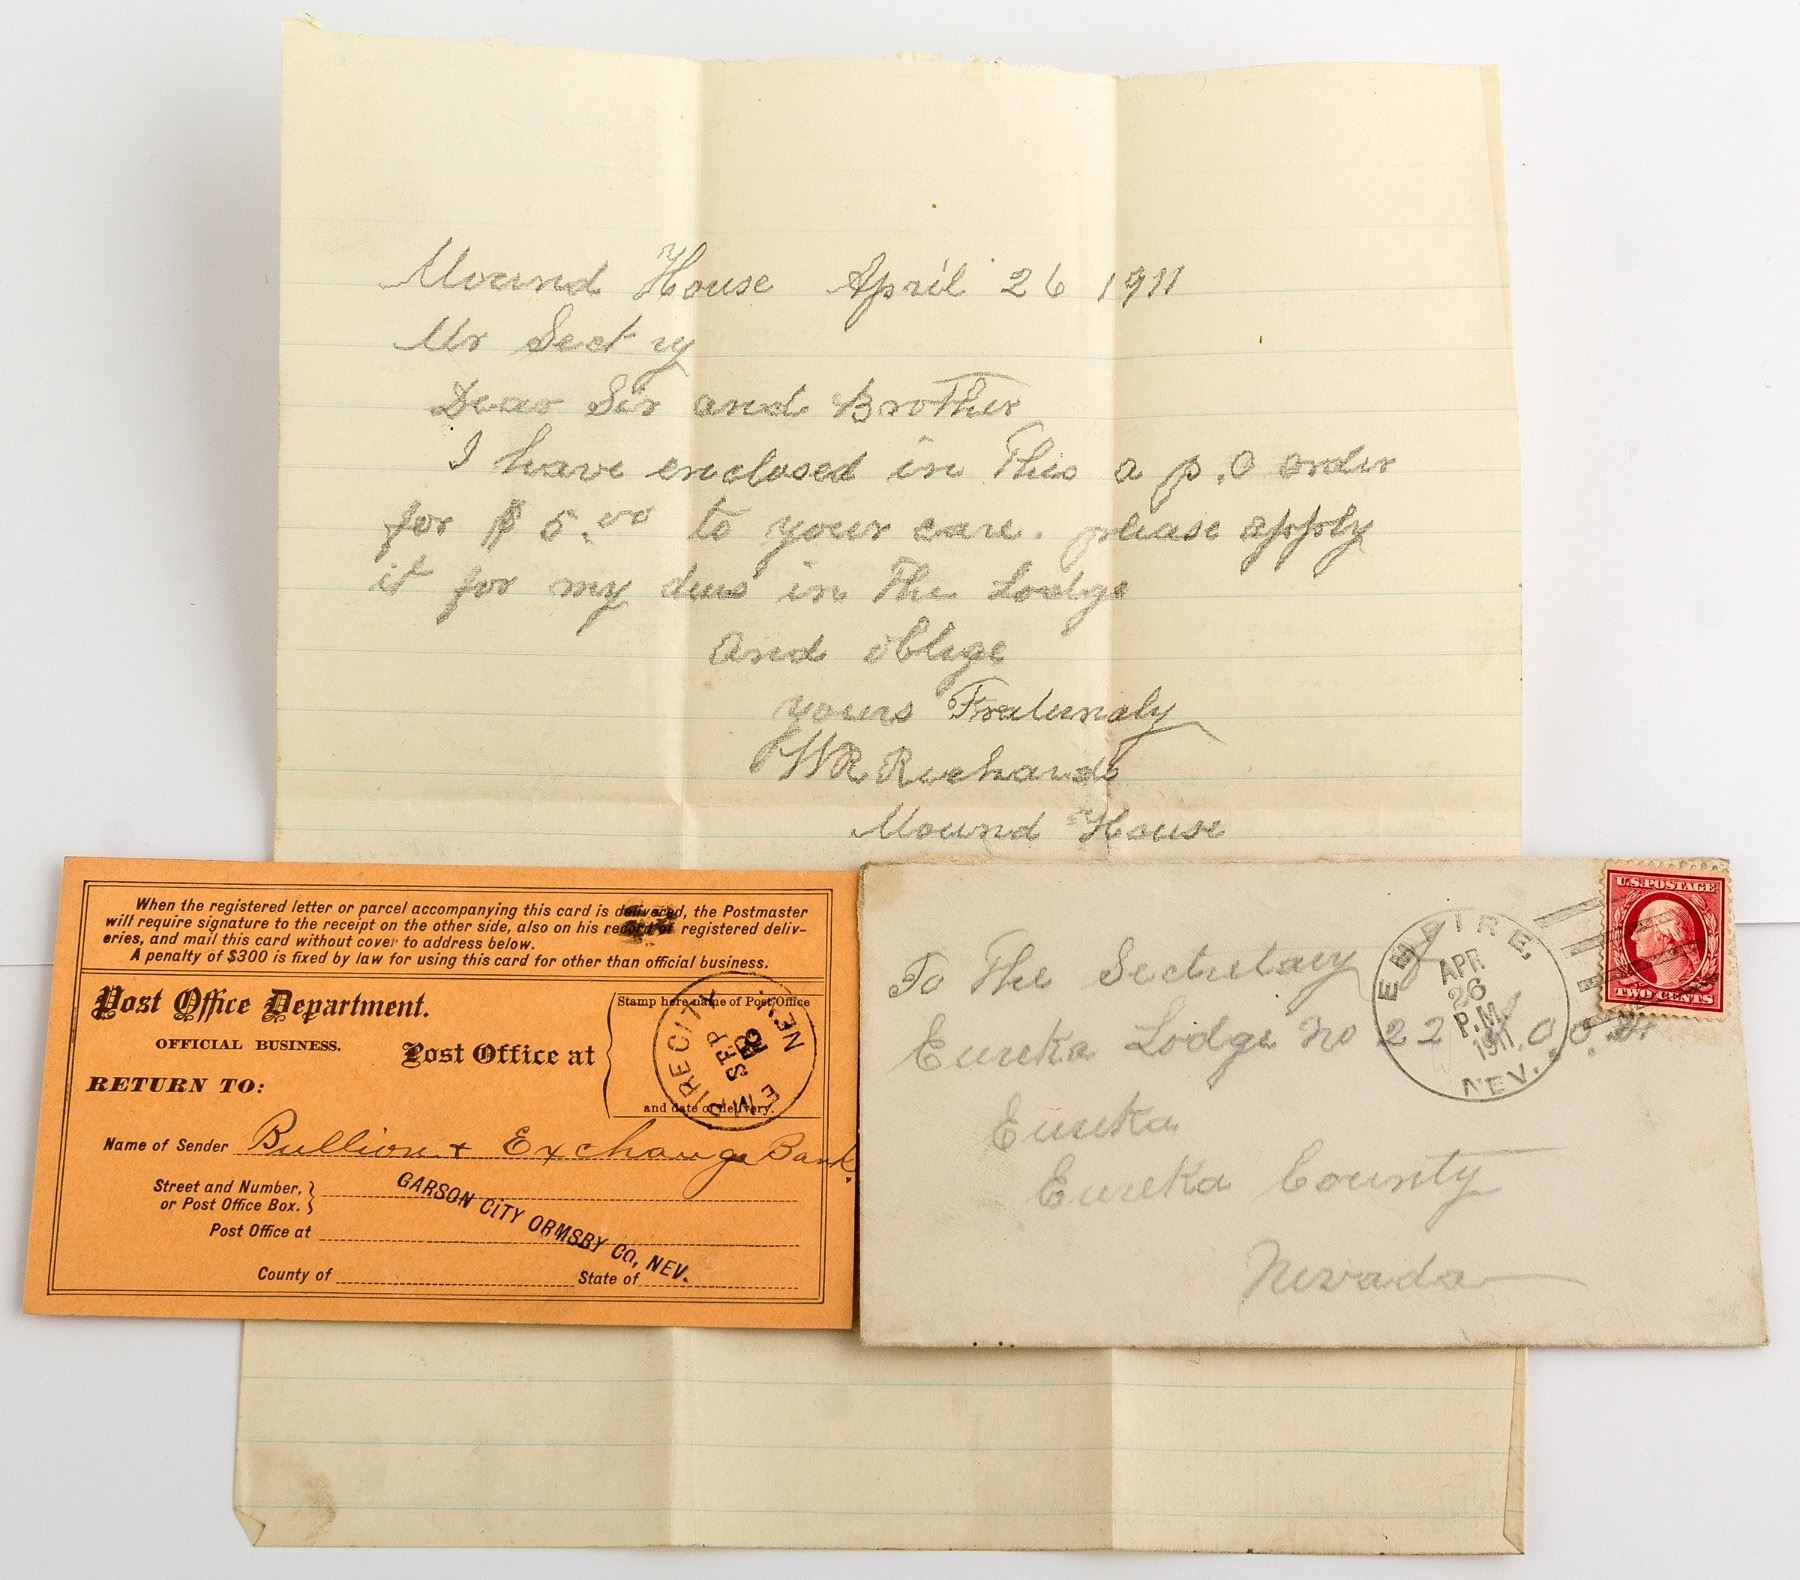 Mound House April 26 1911
Mr Sect ry
Dear Sir and Brother
I have enclosed in This a p.o order
for $5.00 to your care. please apply
it for my dues in The Lodge
and oblige
yours Fraternaly
WR Richards
Mound House
When the registered letter or parcel accompanying this card is delivered, the Postmaster
will require signature to the receipt on the other side, also on his record of registered deliv-
eries, and mail this card without cover to address below.
A penalty of $300 is fixed by law for using this card for other than official business.
Post Office Department.
OFFICIAL BUSINESS.
RETURN TO:
Post Office at
Stamp here name of Post Office
and date of delivery.
EMPIRE CITY
SEP
NEV.
Name of Sender Bullion + Exchange Bank.
Street and Number,
or Post Office Box.
Post Office at
County of
State of
CARSON CITY ORMSBY CO, NEV.
To The Secretary of
Eureka Lodge No 22 O.O.F
Eureka
Eureka County
Nevada
EMPIRE,
APR
26
P.M.
1911
NEV.
U.S. POSTAGE
TWO CENTS